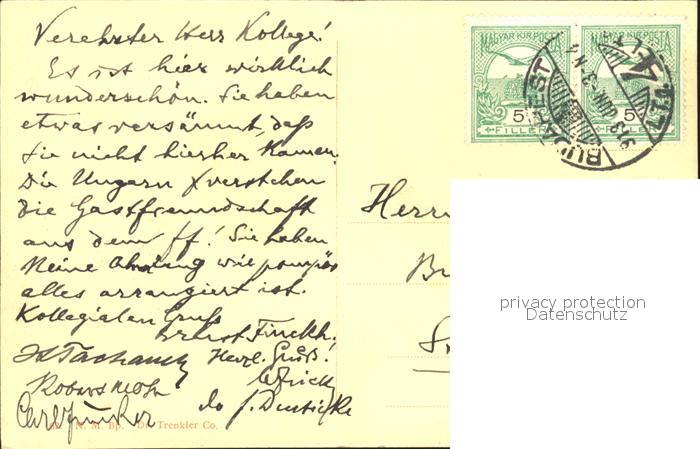 Verehrter Herr Kollege!
Es ist hier wirklich
wunderschön. Sie haben
etwas versäumt, daß
Sie nicht hierher kamen.
Die Ungarn verstehen
die Gastfreundschaft
aus dem ff! Sie haben
keine Ahnung wie pompös
alles arrangiert ist.
Kollegialen Gruß
Ernst Finckh.
Herzl. Gruß!
N. M. Bp. D. Trenkler Co.
MAGYAR KIR. POSTA
5
FILLER
MAGYAR KIR. POSTA
5
FILLER
BUDAPEST
913 JUN
Herrn
privacy protection
Datenschutz